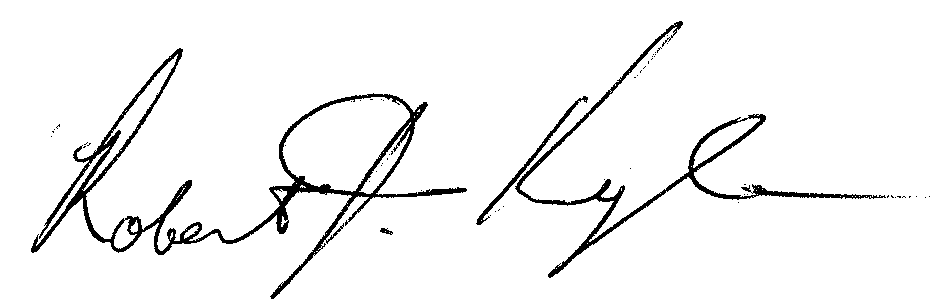 Robert J. Kyle